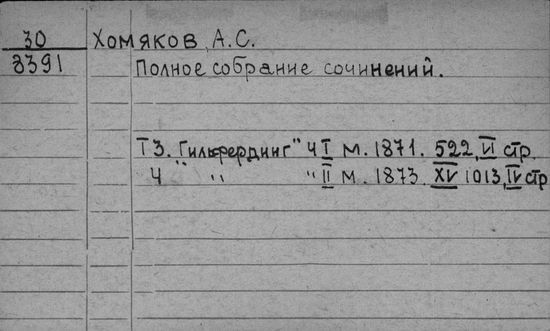 30 Хомяков, А.С.
8391 Полное собрание сочинений.
Т 3. "Гильфердинг" Ч I М. 1871. 522, VI стр.
Ч " " II М. 1873. XV 1013, IV стр